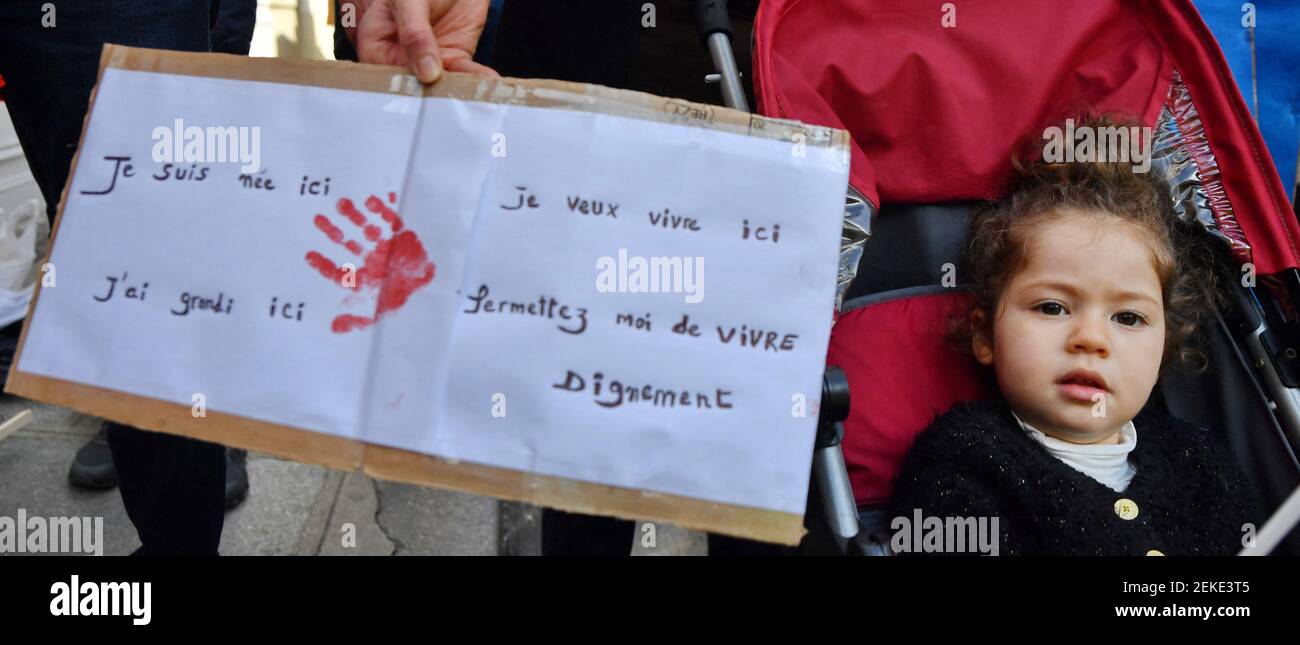 Je suis née ici
J'ai grandi ici
Je veux vivre ici
Permettez moi de VIVRE
Dignement
alamy
alamy
Image ID: 2EKE3T5
www.alamy.com